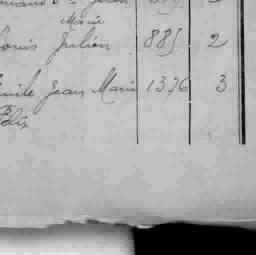 Marie
Louis Julien 885 2
Emile Jean Marie 1336 3
Félix